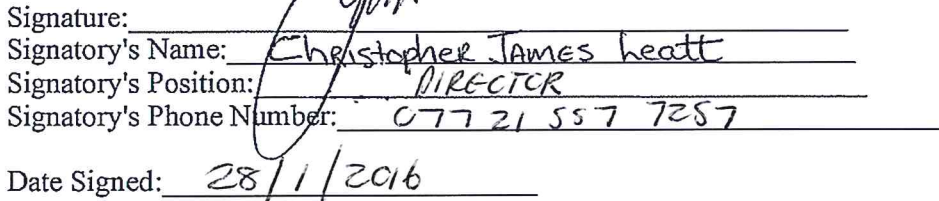 Signature:
Signatory's Name: Christopher JAMES Leatt
Signatory's Position: DIRECTOR
Signatory's Phone Number: 07721 557 7257
Date Signed: 28/1/2016